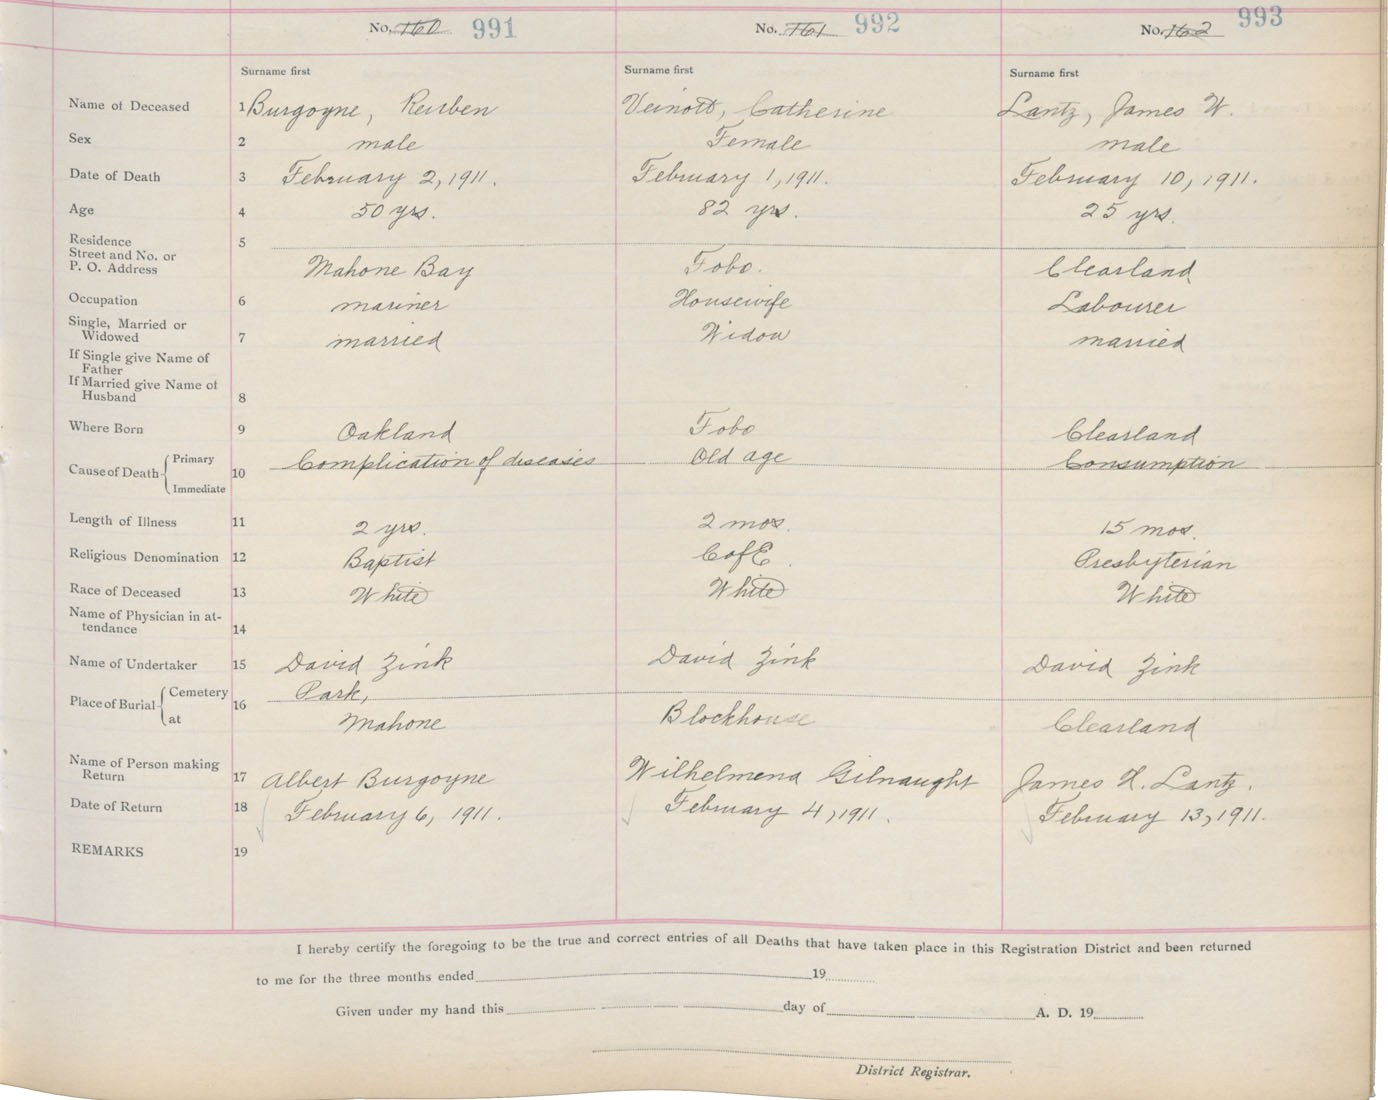 No. 160 991 No. 161 992 No. 162 993
Surname first Surname first Surname first
Name of Deceased 1 Burgoyne, Reuben Veinott, Catherine Lantz, James W.
Sex 2 male Female male
Date of Death 3 February 2, 1911. February 1, 1911. February 10, 1911.
Age 4 50 yrs. 82 yrs. 25 yrs.
Residence 5
Street and No. or
P. O. Address Mahone Bay Fobo. Clearland
Occupation 6 mariner Housewife Labourer
Single, Married or
Widowed 7 married Widow married
If Single give Name of
Father
If Married give Name of
Husband 8
Where Born 9 Oakland Fobo Clearland
Cause of Death Primary 10 Complication of diseases Old age Consumption
Immediate
Length of Illness 11 2 yrs. 2 mos. 15 mos.
Religious Denomination 12 Baptist C of E. Presbyterian
Race of Deceased 13 White White White
Name of Physician in at-
tendance 14
Name of Undertaker 15 David Zink David Zink David Zink
Place of Burial Cemetery 16 Park,
at Mahone Blockhouse Clearland
Name of Person making
Return 17 Albert Burgoyne Wilhelmena Gilnaught James H. Lantz.
Date of Return 18 February 6, 1911. February 4, 1911. February 13, 1911.
REMARKS 19
I hereby certify the foregoing to be the true and correct entries of all Deaths that have taken place in this Registration District and been returned
to me for the three months ended 19
Given under my hand this day of A. D. 19
District Registrar.